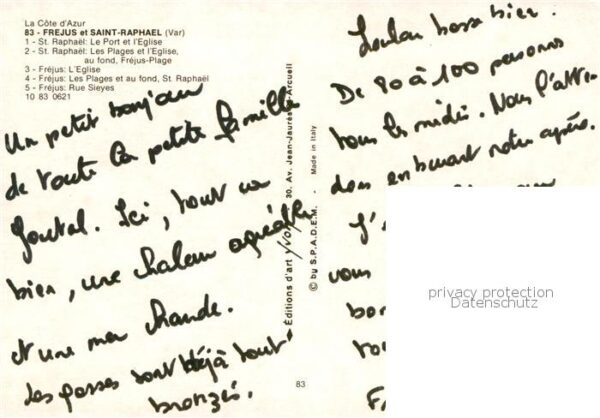 La Côte d'Azur
83 - FREJUS et SAINT-RAPHAEL (Var)
1 - St. Raphaël: Le Port et l'Eglise
2 - St. Raphaël: Les Plages et l'Eglise,
au fond, Fréjus-Plage
3 - Fréjus: L'Eglise
4 - Fréjus: Les Plages et au fond, St. Raphaël
5 - Fréjus: Rue Sieyes
10 83 0621
Un petit bonjour
de toute la petite famille
Ici, tout va
bien, une chaleur agréable
et une mer chaude.
Les gosses sont déjà tout
bronzés.
Editions d'art YVON, 30. Av. Jean-Jaurès, Arcueil
© by S.P.A.D.E.M. - Made in Italy
83
bosse bien.
De 80 à 100 personnes
tous les midis. Nous l'atten-
dons en buvant notre apéro.
J'
vous
privacy protection
Datenschutz